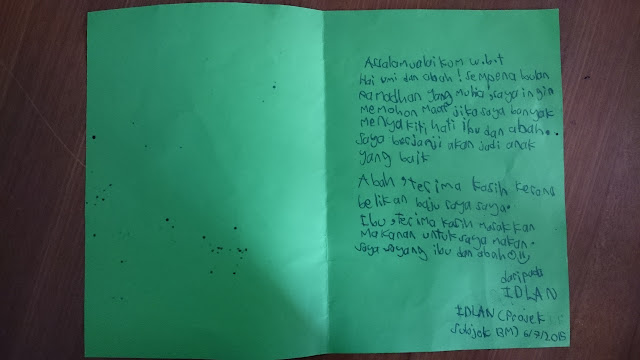 Assalamualaikum w.b.t
Hai umi dan abah! sempena bulan
ramadhan yang mulia, saya ingin
memohon maaf jika saya banyak
menyakiti hati ibu dan abah.
saya berjanji akan jadi anak
yang baik
Abah, terima kasih kerana
belikan baju raya saya.
Ibu, terima kasih masakkan
makanan untuk saya makan.
saya sayang ibu dan abah
daripada
IDLAN
IDLAN (Projek
Subjek BM) 6/7/2015